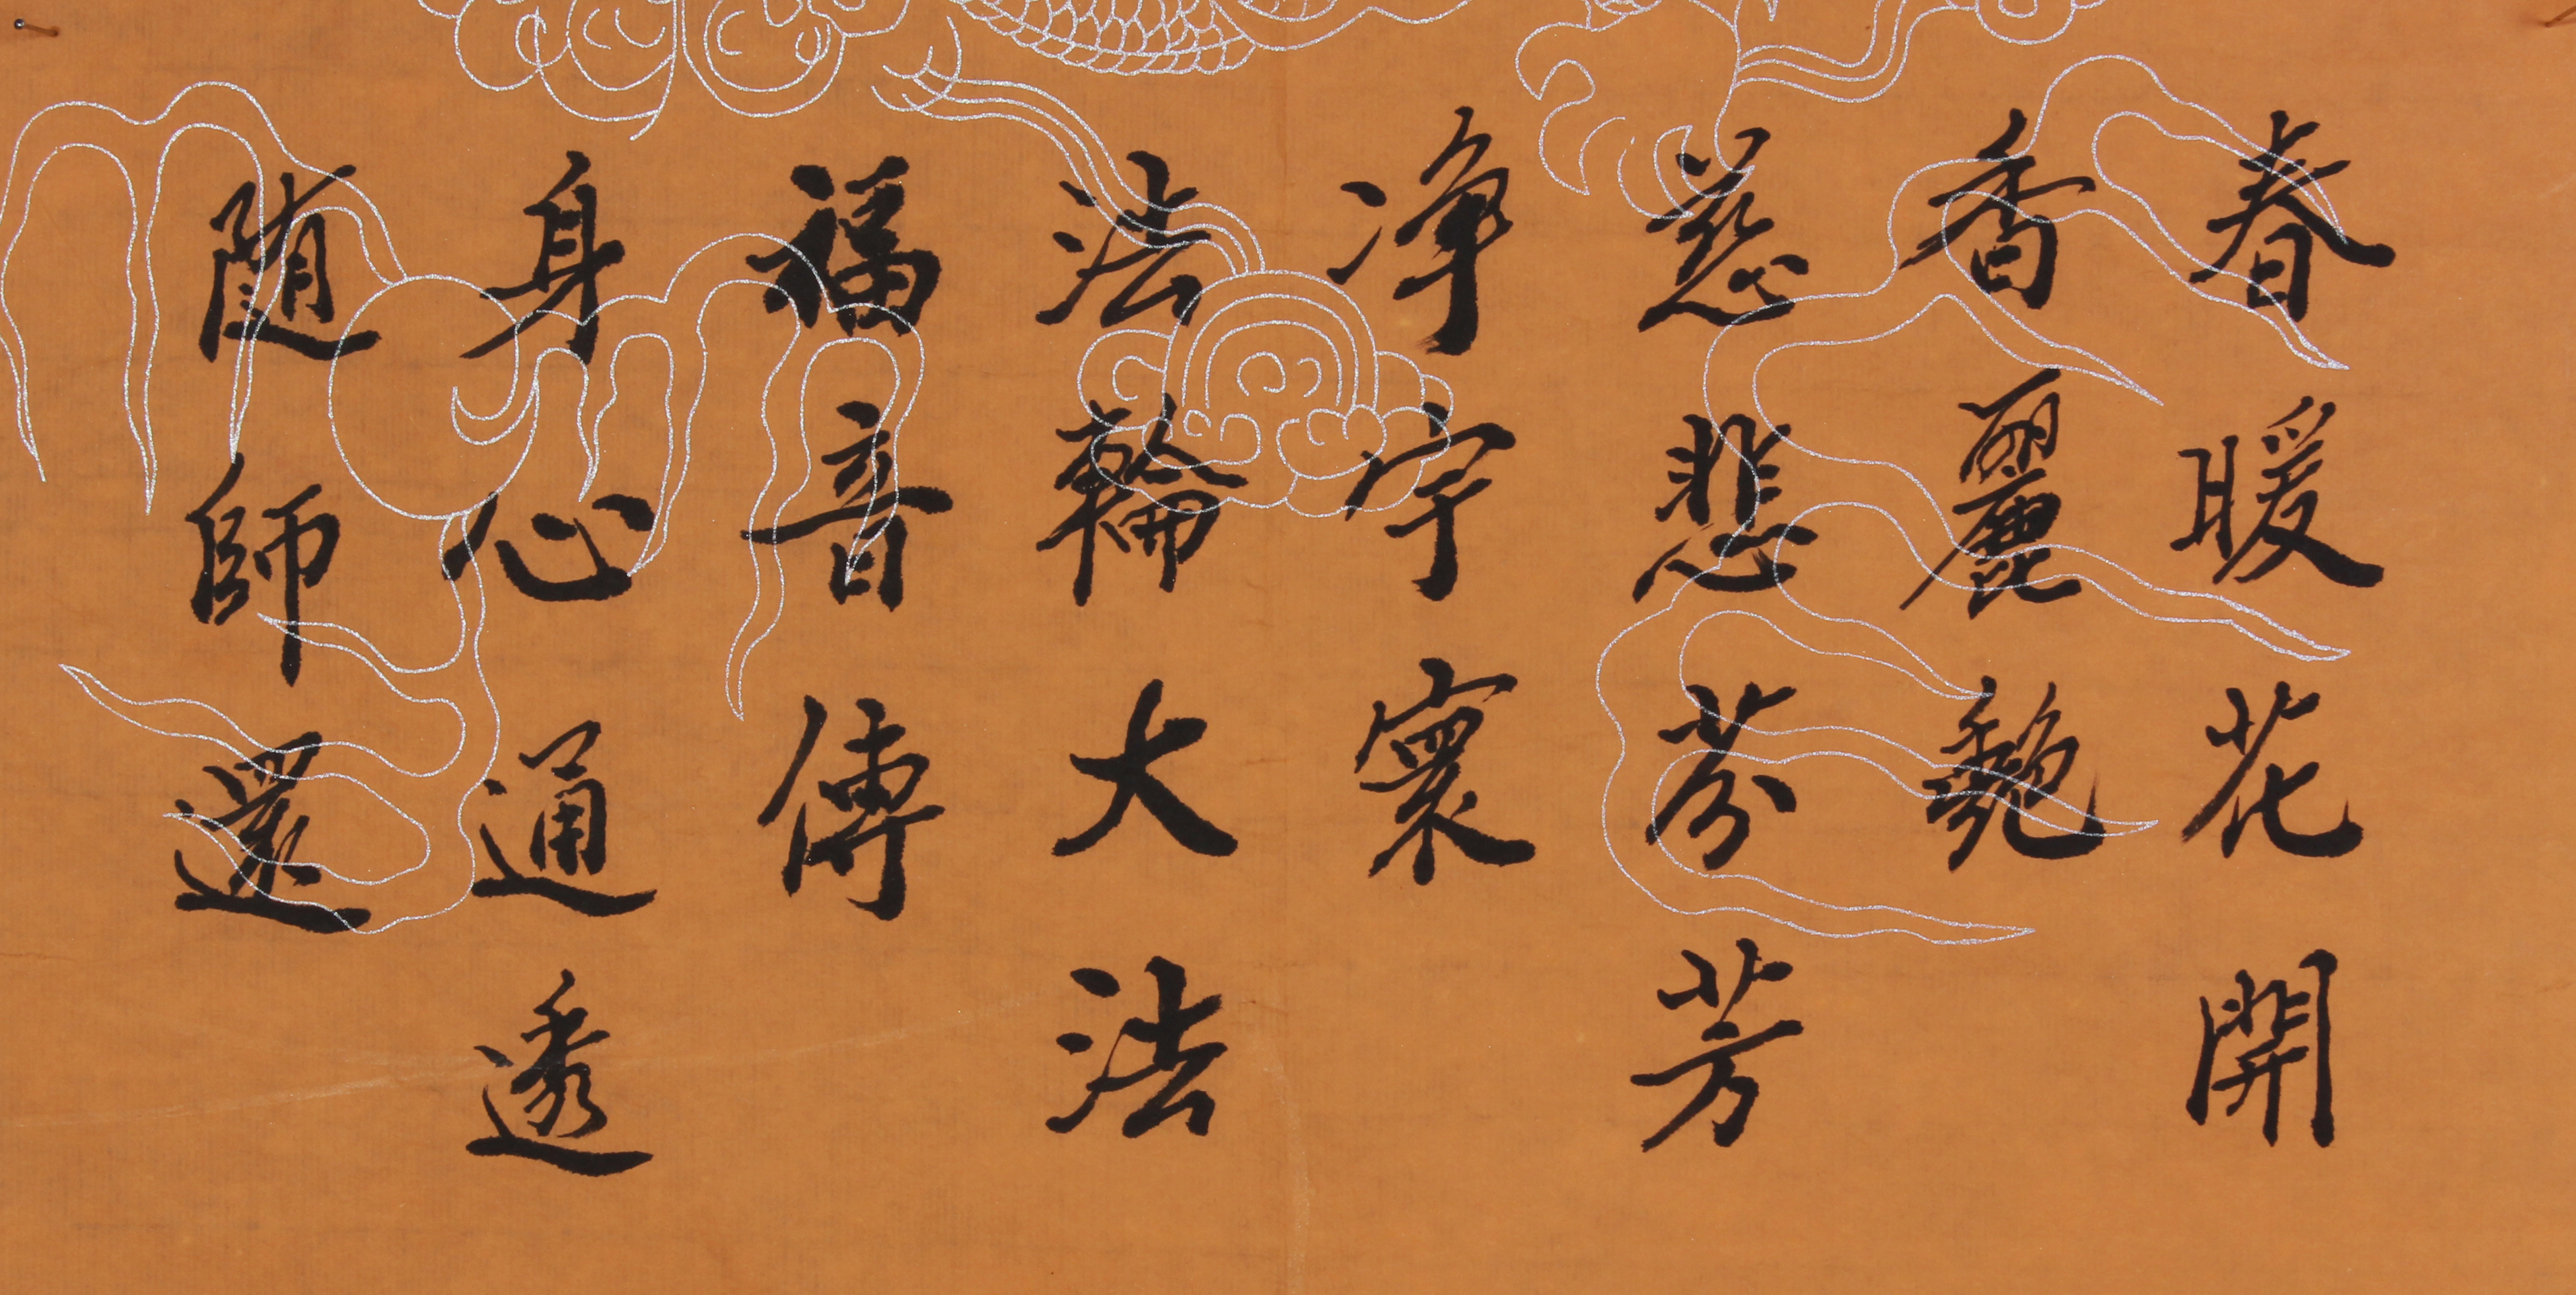 春暖花開
香麗艷
慈悲芬芳
净宇寰
法輪大法
福音傳
身心通透
随師還